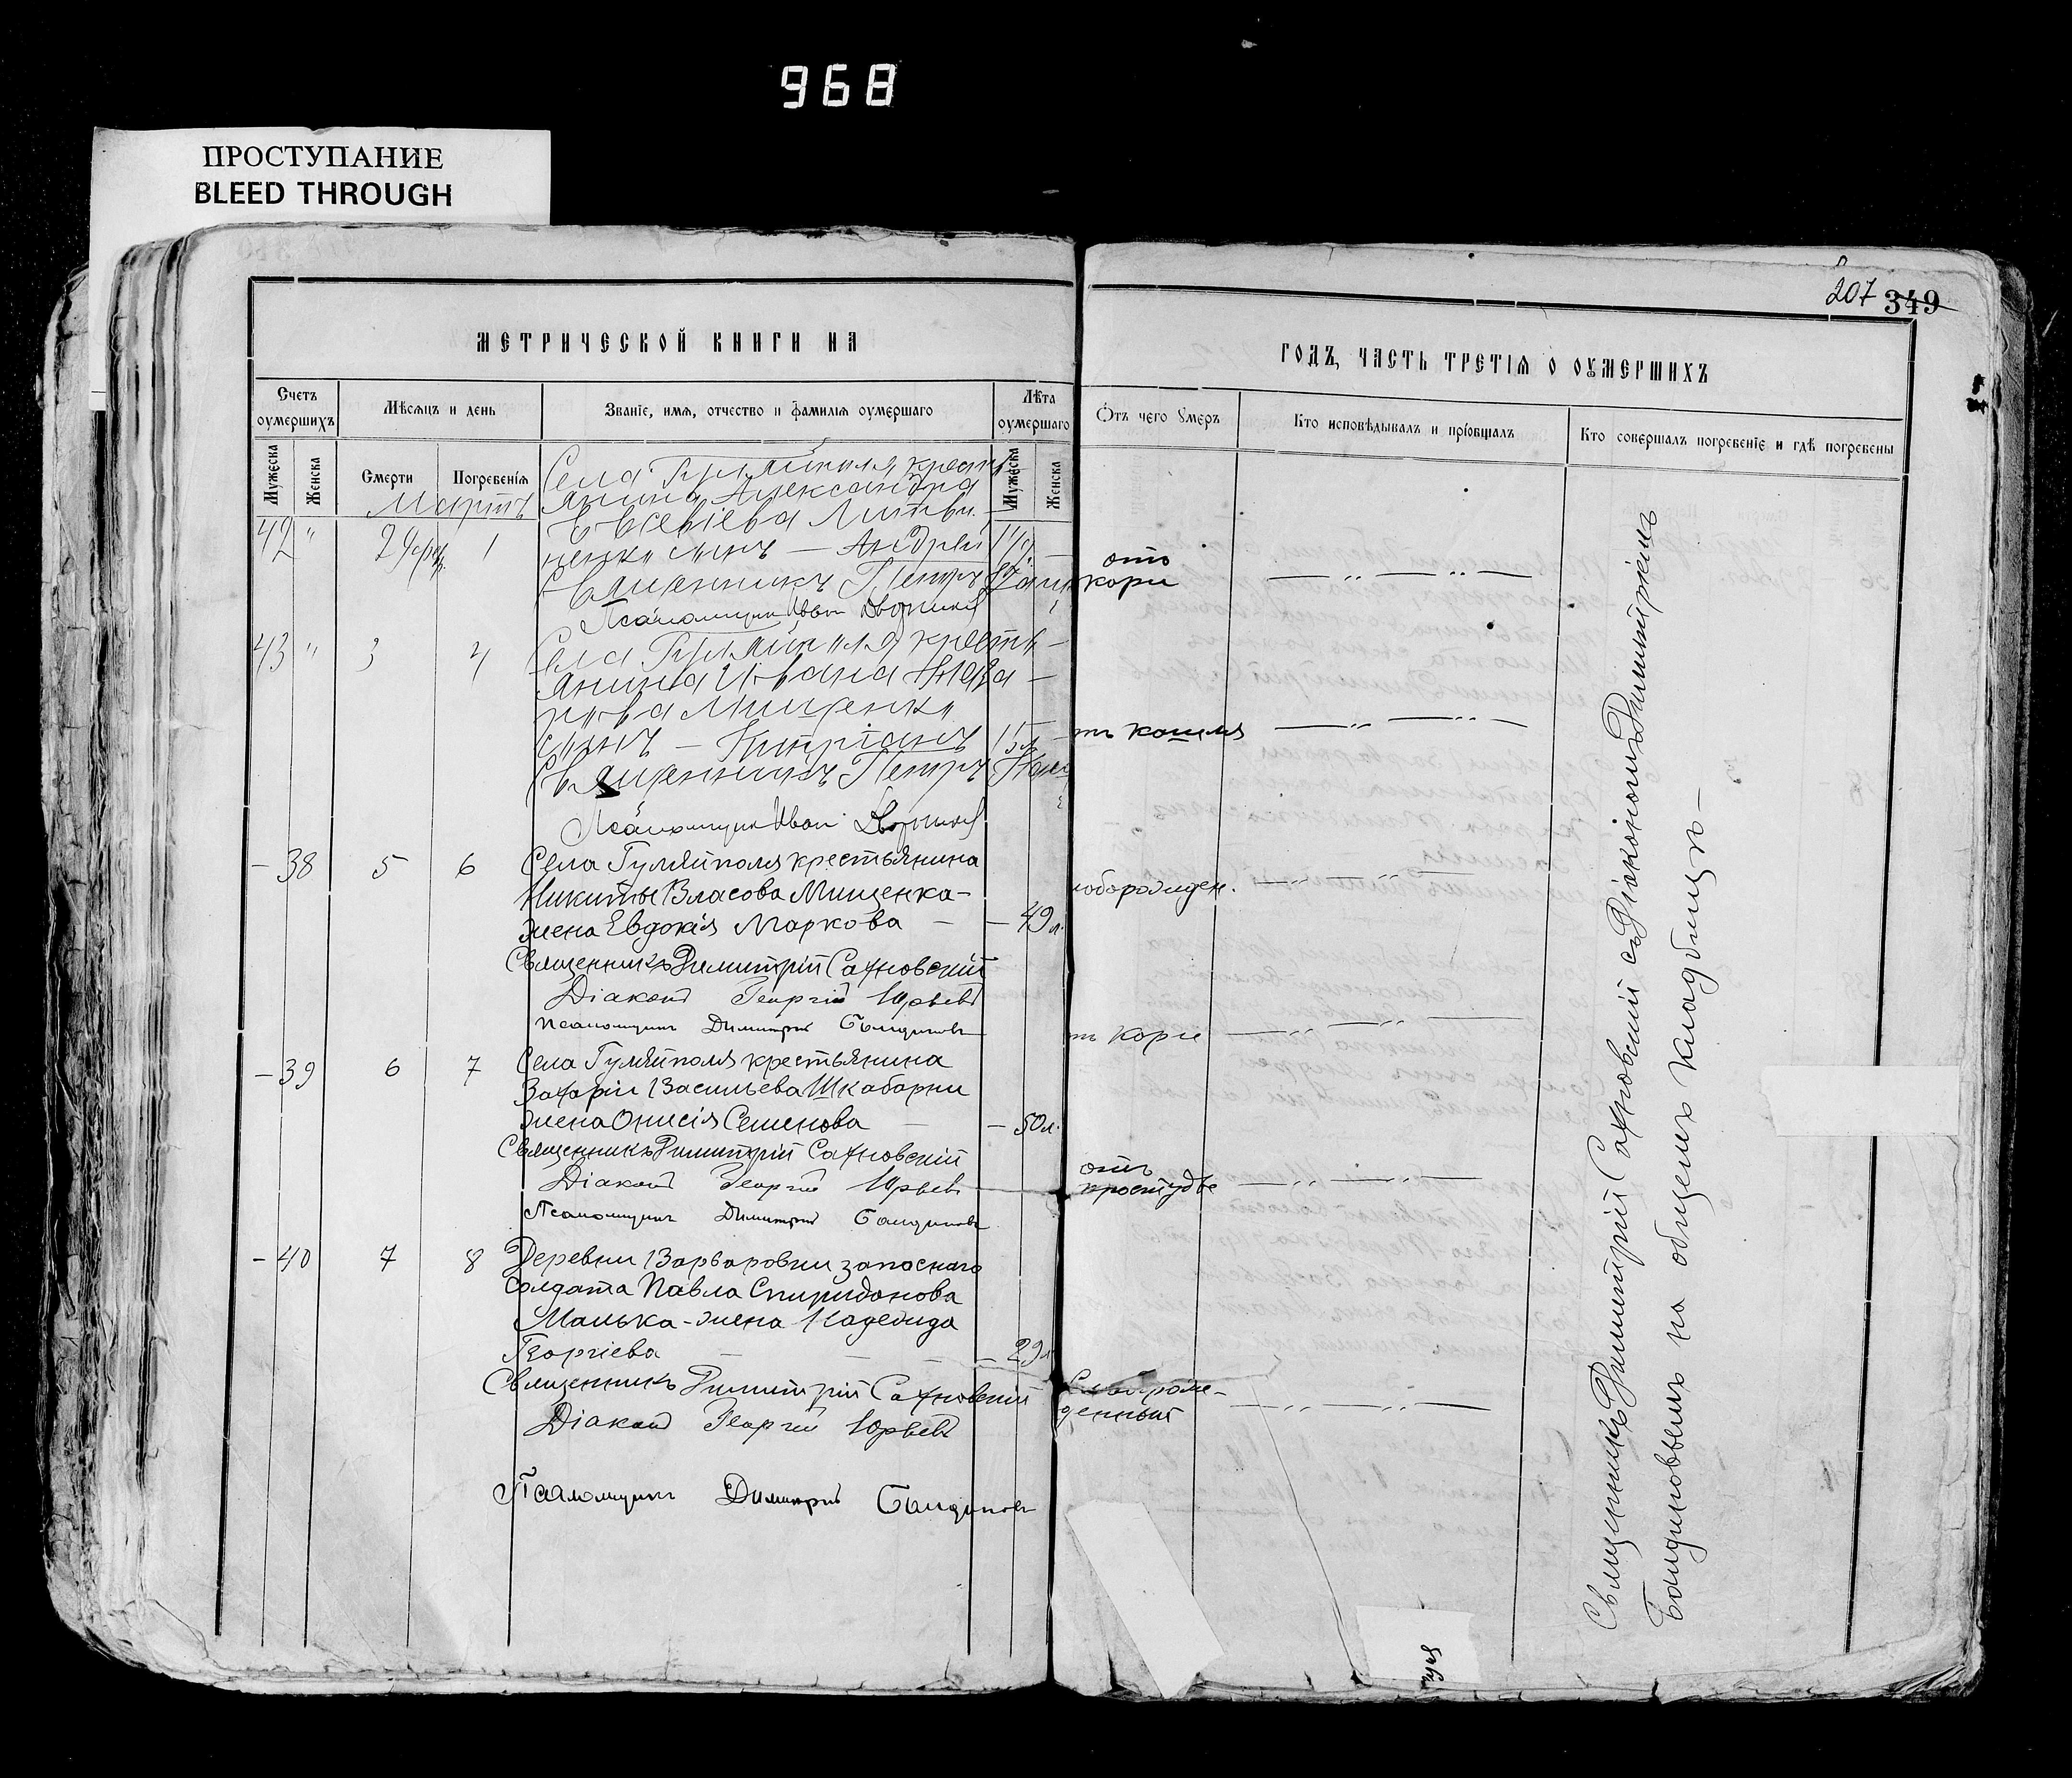 968
ПРОСТУПАНИЕ
BLEED THROUGH
207 349
МЕТРИЧЕСКОЙ КНИГИ НА
ГОДЪ, ЧАСТЬ ТРЕТІЯ О ОУМЕРШИХЪ
Счетъ оумершихъ
Мѣсяцъ и день
Званіе, имя, отчество и фамилія оумершаго
Лѣта оумершаго
Отъ чего умеръ
Кто исповѣдывалъ и пріобщалъ
Кто совершалъ погребеніе и гдѣ погребены
Мужеска
Женска
Смерти
Погребенія
Мужеска
Женска
Мартъ
Села Гуляйполя кресть-
янина Александра
Евсевіева Литви-
42 " 29 февр. 1 ненки сынъ — Андрей
отъ кори
Священникъ Петръ
Псаломщикъ Иван
43 " 3 4 Села Гуляйполя кресть-
янина Ивана
Мищенки
сынъ — Кипріанъ
отъ кашля
Священникъ Петръ
Псаломщикъ Иван
- 38 5 6 Села Гуляйполя крестьянина
Никиты Власова Мищенка-
жена Евдокія Маркова — — 49 л.
Священникъ Димитрій Сахновскій
Діаконъ Георгій Юрьевъ
Псаломщикъ Димитрій
отъ кори
- 39 6 7 Села Гуляйполя крестьянина
Захарія Васильева Шкабарни
жена Онисія Семенова — — 50 л.
Священникъ Димитрій Сахновскій
Діаконъ Георгій Юрьевъ
Псаломщикъ Димитрій
отъ
простуды
- 40 7 8 Деревни Варваровки запаснаго
солдата Павла Спиридонова
Малька - жена Надежда
Георгіева — — — 29 л.
Священникъ Димитрій Сахновскій
Діаконъ Георгій Юрьевъ
Псаломщикъ Димитрій
Священникъ Димитрій Сахновскій съ Діакономъ
на общемъ кладбищѣ —